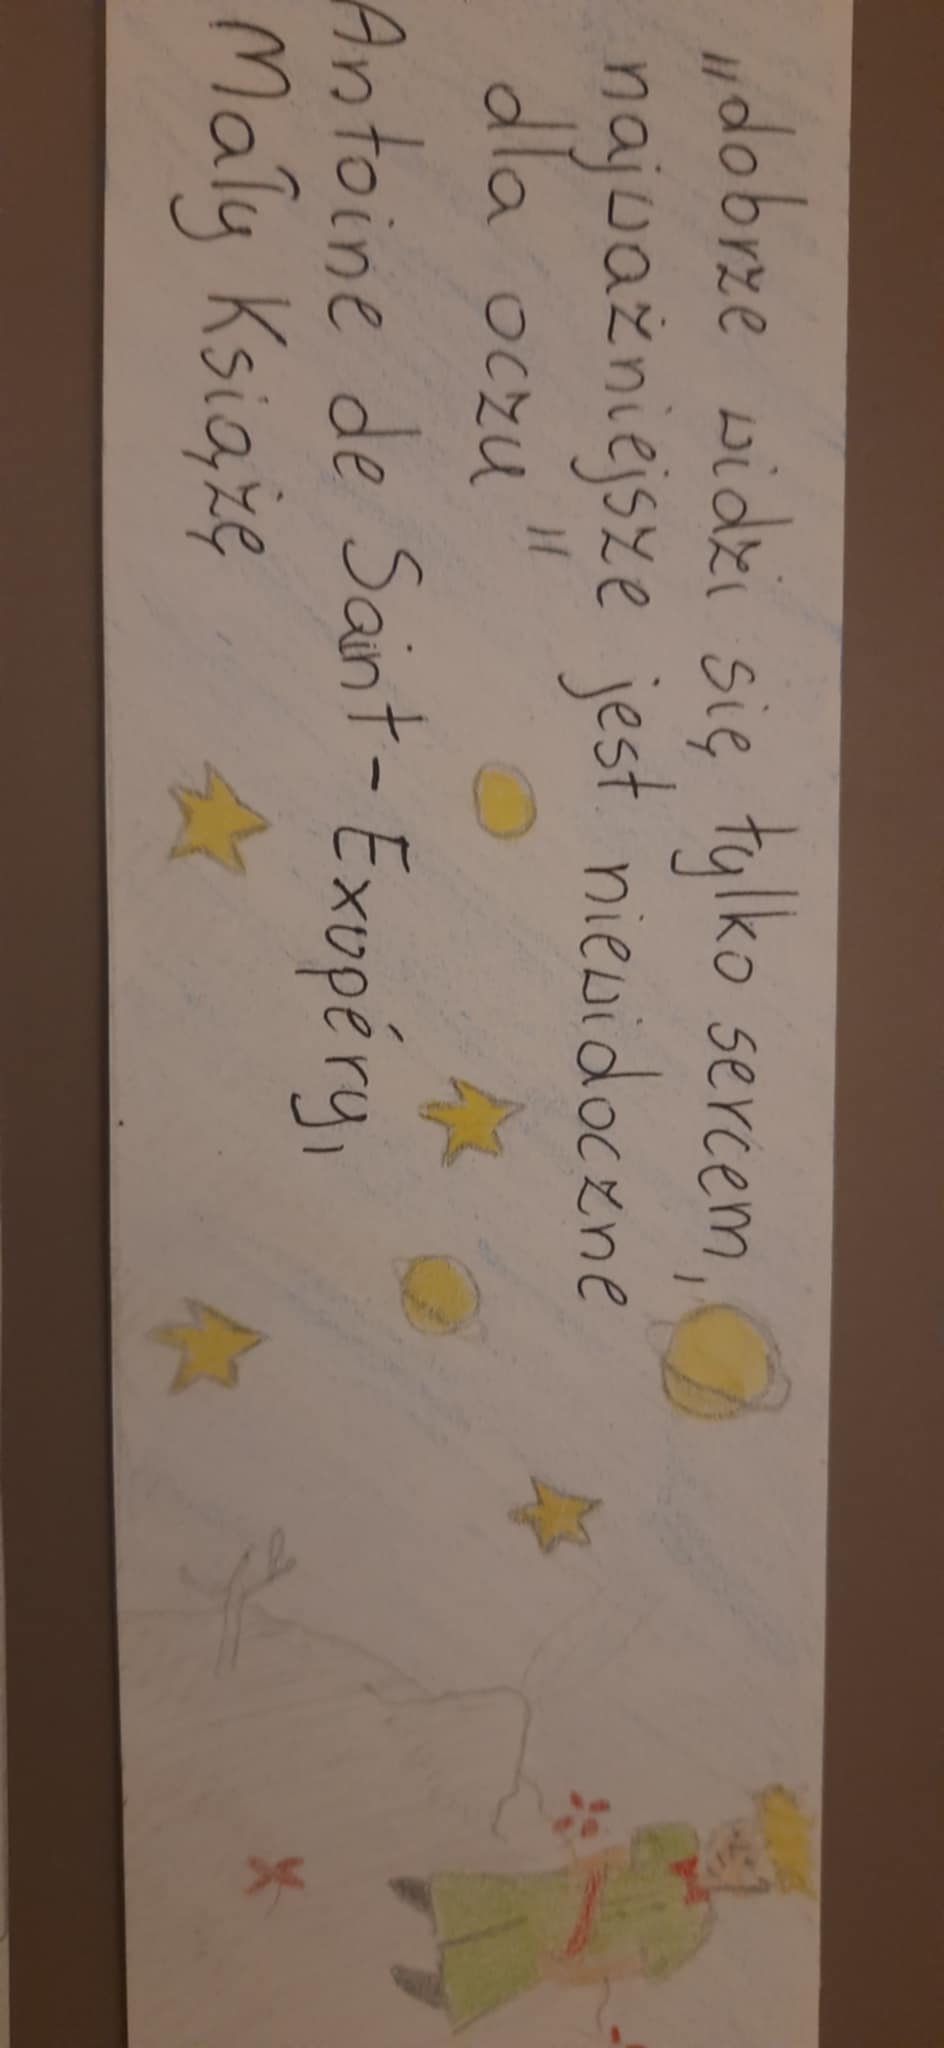 "dobrze widzi się tylko sercem,
najważniejsze jest niewidoczne
dla oczu"
Antoine de Saint-Exupéry,
Mały Książę